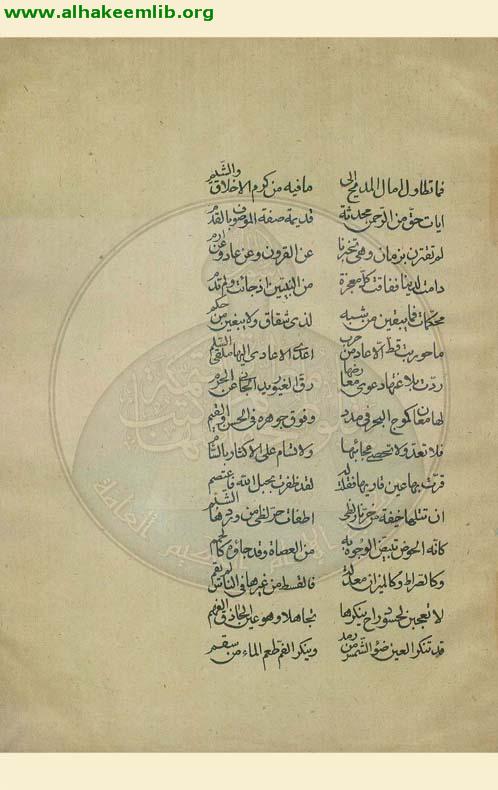 www.alhakeemlib.org
فما تطاول امال المديح الى ما فيه من كرم الاخلاق والشيم
ايات حق من الرحمن محدثة قديمة صفة الموصوف بالقدم
لم تقترن بزمان وهي تخبرنا عن القرون وعن عاد وعن ارم
دامت لدينا ففاقت كل معجزة من النبيين اذ جائت ولم تدم
محكمات فما يبقين من شبه لذى شقاق ولا يبغين من حكم
ما حوربت قط الا عاد من حرب اعدى الاعادى اليها ملقى السلم
ردت بلاغتها دعوى معارضها رد الغيور يد الجانى عن الحرم
لها معان كموج البحر فى مدد وفوق جوهره فى الحسن والقيم
فلا تعد ولا تحصى عجائبها ولا تسام على الاكثار بالسأم
قرت بها عين قاريها فقلت له لقد ظفرت بحبل الله فاعتصم
ان تتلها خيفة من حر نار لظى اطفات حر لظى من وردها الشبم
كانه الحوض تبيض الوجوه به من العصاة وقد جاؤه كالحمم
وكالصراط وكالميزان معدلة فالقسط من غيرها فى الناس لم يقم
لا تعجبن لحسود راح ينكرها تجاهلا وهو عين الحاذق الفهم
قد تنكر العين ضوء الشمس من رمد وينكر الفم طعم الماء من سقم